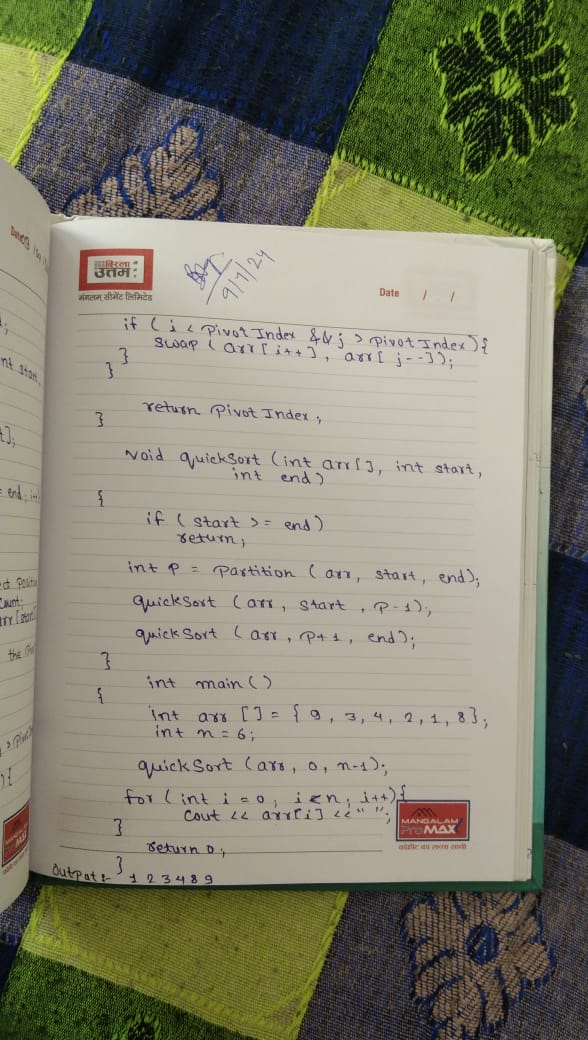 बिरला
उत्तम
मंगलम् सीमेंट लिमिटेड
9/7/24
Date / /
if ( i < Pivot Index && j > pivot Index) {
swap ( arr [ i++ ] , arr [ j-- ] );
}
}
return Pivot Index ;
}
void quickSort ( int arr [ ], int start,
int end )
{
if ( start >= end )
return ;
int P = Partition ( arr, start, end );
quickSort ( arr , start , P-1 );
quick Sort ( arr , P+1 , end );
}
int main ( )
{
int arr [ ] = { 9, 3, 4, 2, 1, 8 };
int n = 6;
quickSort ( arr , 0, n-1 );
for ( int i = 0; i < n; i++ ) {
cout << arr [ i ] << " ";
}
return 0 ;
}
Output :- 1 2 3 4 8 9
MANGALAM
ProMAX
कांक्रीट का सच्चा साथी
nt start,
= end; i++
count;
arr [ start
the
) {